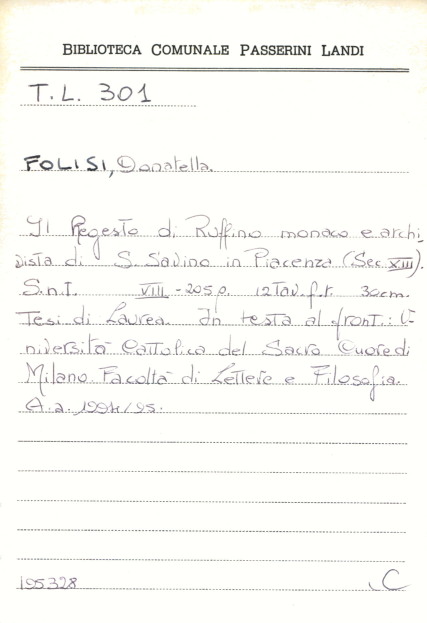 BIBLIOTECA COMUNALE PASSERINI LANDI
T.L. 301
FOLISI, Donatella.
Il Regesto di Ruffino monaco e archi
vista di S. Savino in Piacenza (Sec. XIII).
S.n.T. VIII - 205 p. 12 Tav. f.t. 30 cm.
Tesi di Laurea. In testa al front.: U-
niversità Cattolica del Sacro Cuore di
Milano. Facoltà di Lettere e Filosofia.
A.a. 1994/95.
195328 C